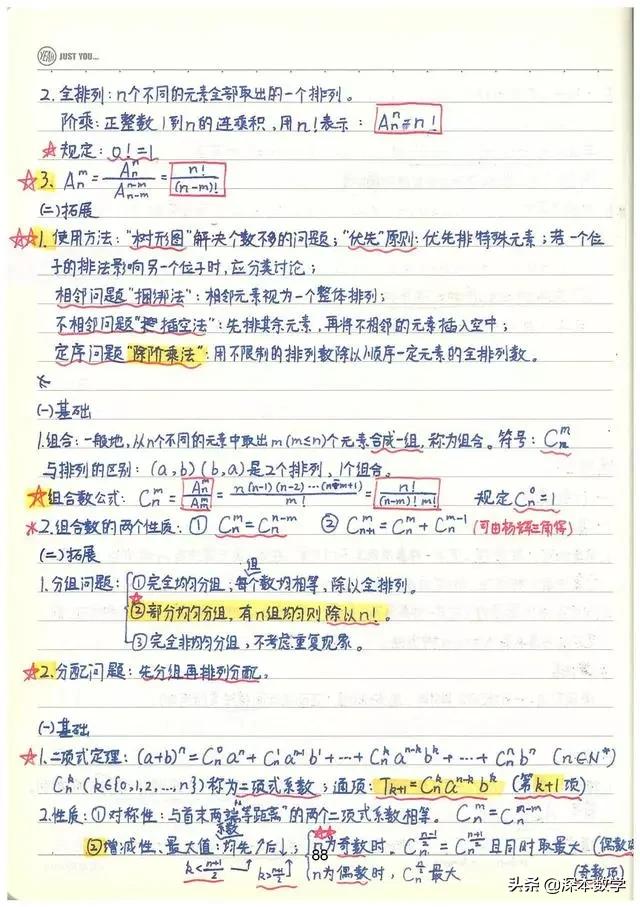 YEAH JUST YOU...
2. 全排列：n个不同的元素全部取出的一个排列。
阶乘：正整数1到n的连乘积，用n!表示：Aₙⁿ=n!
☆规定：0!=1
☆3. Aₙᵐ = Aₙⁿ/Aₙ₋ₘⁿ⁻ᵐ = n!/(n-m)!
(二)拓展
☆☆1. 使用方法："树形图"解决个数不多的问题；"优先"原则：优先排特殊元素；若一个位
子的排法影响另一个位子时，应分类讨论；
相邻问题"捆绑法"：相邻元素视为一个整体排列；
不相邻问题"插空法"：先排其余元素，再将不相邻的元素插入空中；
定序问题"除阶乘法"：用不限制的排列数除以顺序一定元素的全排列数。
(一)基础
1.组合：一般地，从n个不同的元素中取出m(m≤n)个元素合成一组，称为组合。符号：Cₙᵐ
与排列的区别：(a,b)(b,a)是2个排列，1个组合。
☆组合数公式：Cₙᵐ = Aₙᵐ/Aₘᵐ = n(n-1)(n-2)…(n-m+1)/m! = n!/(n-m)!m! 规定Cₙ⁰=1
*2.组合数的两个性质：① Cₙᵐ=Cₙⁿ⁻ᵐ ② Cₙ₊₁ᵐ=Cₙᵐ+Cₙᵐ⁻¹ (可由杨辉三角得)
(二)拓展
1.分组问题：①完全均匀分组，每组个数均相等，除以全排列。
☆②部分均匀分组，有n组均匀则除以n!。
③完全非均匀分组，不考虑重复现象。
☆2.分配问题：先分组再排列分配。
(一)基础
☆1.二项式定理：(a+b)ⁿ=Cₙ⁰aⁿ+Cₙ¹aⁿ⁻¹b¹+…+Cₙᵏaⁿ⁻ᵏbᵏ+…+Cₙⁿbⁿ (n∈N*)
Cₙᵏ(k∈{0,1,2,…,n})称为二项式系数；通项：Tₖ₊₁=Cₙᵏaⁿ⁻ᵏbᵏ (第k+1项)
2.性质：①对称性：与首末两端"等距离"的两个二项式系数相等。Cₙᵐ=Cₙⁿ⁻ᵐ
②增减性、最大值：系数均先↑后↓；☆☆n为奇数时，Cₙ^((n-1)/2)=Cₙ^((n+1)/2)且同时取最大 (偶数项
k<(n+1)/2 → k>(n+1)/2 n为偶数时，Cₙ^(n/2)最大 (奇数项)
88
头条 @深本数学